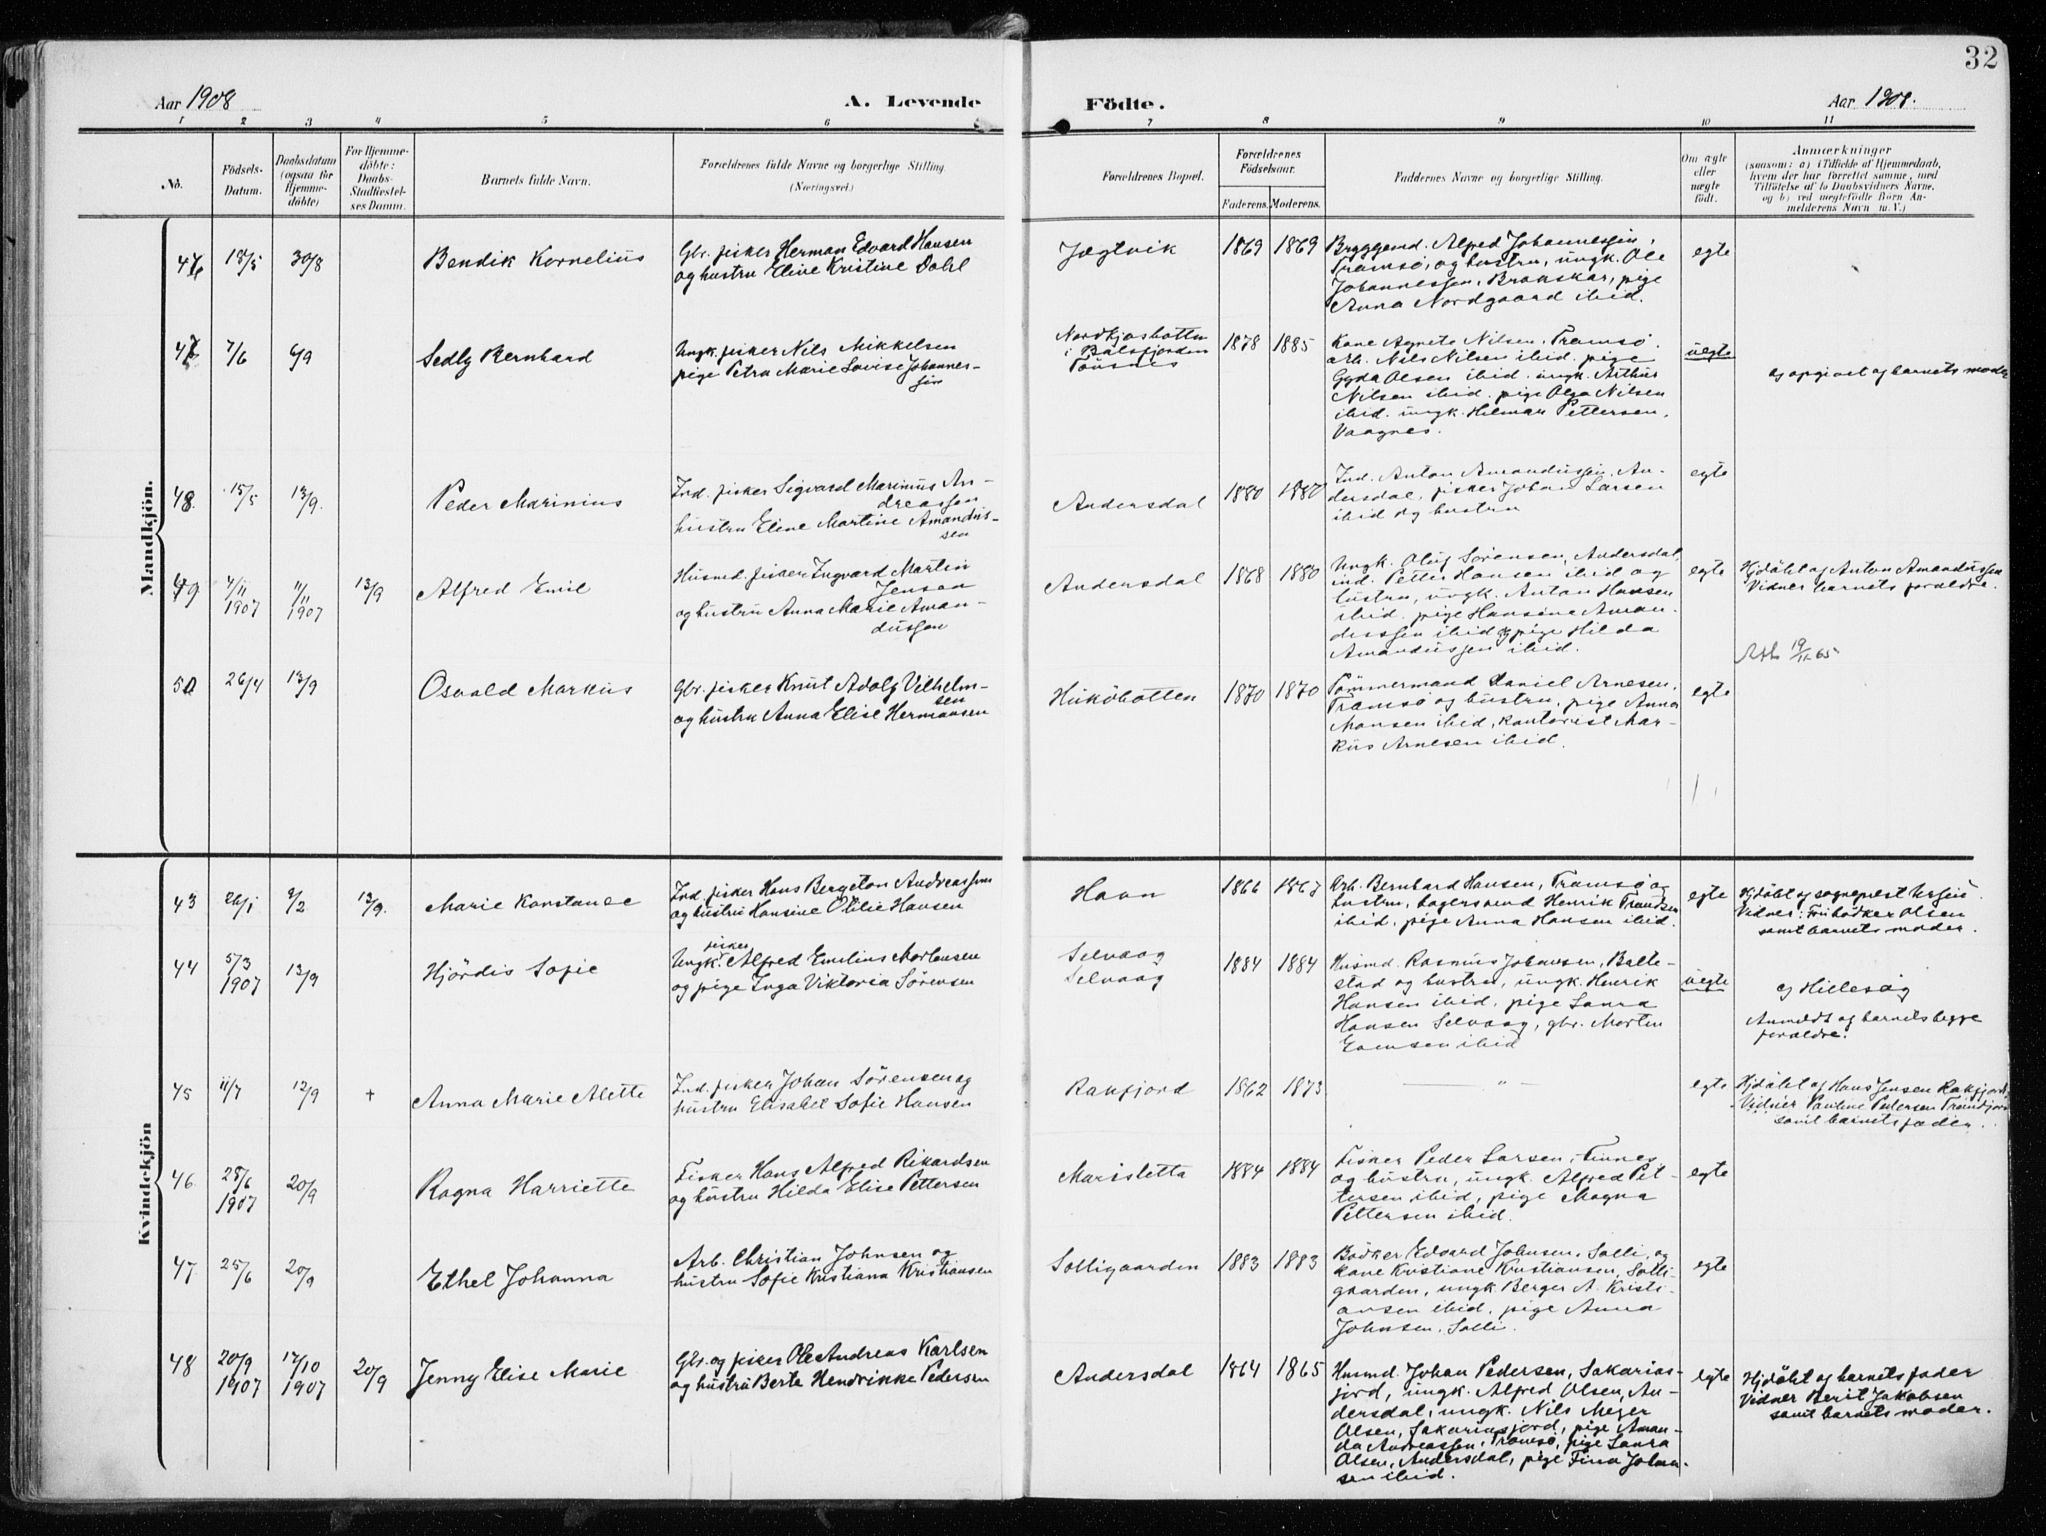 32
Aar 1908
A. Levende
Födte.
Aar 1908.
1 2 3 4 5 6 7 8 9 10 11
No.
Födsels-
Datum.
Daabsdatum
(ogsaa for
Hjemme-
döbte)
For Hjemme-
döbte:
Daabs-
Stadfæstel-
ses Datum.
Barnets fulde Navn.
Forældrenes fulde Navne og borgerlige Stilling.
(Næringsvei.)
Forældrenes Bopæl.
Forældrenes
Födselsaar.
Faderens. Moderens.
Faddernes Navne og borgerlige Stilling.
Om ægte
eller
uægte
födt.
Anmærkninger
(saasom: a) i Tilfælde af Hjemmedaab,
hvem der har forrettet samme, med
Tilföielse af to Daabsvidners Navne,
og b) ved uægtefödte Börn An-
melderens Navn m. V.)
Mandkjön.
46 18/5 30/8 Bendik Kornelius
Gbr. fisker Herman Edvard Hansen
og hustru Eline Kristine Dahl
Jægtvik 1869 1869
Bryggemd. Alfred Johannessen,
Tromsø, og hustru, ungk. Ole
Johannessen, Brokskar, pige
Anna Nordgaard ibid.
egte
47 7/6 6/9 Sedly Bernhard
Ungk. fisker Nils Mikkelsen
pige Petra Marie Lovise Johannes-
sen
Nordkjosbotten
i Balsfjorden
Tønsnes
1878 1885
Kone Agnete Nilsen, Tromsø.
arb. Nils Nilsen ibid. pige
Gyda Olsen ibid. ungk. Arthur
Nilsen ibid. pige Olga Nilsen
ibid. ungk. Hilmar Pettersen,
Vaagnes.
uegte
opgivet af barnets moder
48. 15/5 13/9. Peder Marinius
Ind. fisker Sigvard Marinus An-
dreassen
hustru Eline Martine Amandus-
sen
Andersdal 1880 1880
Ind. Anton Amandussen, An-
dersdal, fisker Johan Larsen
ibid og hustru
egte
49 4/11 1907 11/11 1907 13/9 Alfred Emil
Husmd. fisker Ingvard Martin
Jensen
og hustru Anna Marie Aman-
dussen
Andersdal 1868 1880
Ungk. Oluf Sørensen, Andersdal,
ind. Petter Hansen ibid og
hustru, ungk. Anton Hansen
ibid. pige Hansine Aman-
dussen ibid og pige Hilda
Amandussen ibid.
egte
Hjdøbt af Anton Amandussen
Vidner barnets forældre.
50 26/4 13/9 Osvald Markus
Gbr. fisker Knut Adolf Vilhelm-
sen
og hustru Anna Elise Hermansen
Hukøbotten 1870 1870
Tømmermand Daniel Arnesen,
Tromsø og hustru, pige Anna
Monsen ibid, kontorist Mar-
kus Arnesen ibid.
egte
19/11 65
Kvindekjön
43 26/1 9/2 13/9. Marie Konstance
Ind. fisker Hans Bergeton Andreassen
og hustru Hansine Otilie Hansen
Havn 1866 1867
Arb. Bernhard Hansen, Tromsø og
hustru, bagersvend Henrik
ibid, pige Anna Hansen ibid.
egte
Hjdøbt af sogneprest
Vidner: Fru bødker Olsen
samt barnets moder.
44 5/3 1907 13/9 Hjördis Sofie
fisker
Ungk. Alfred Emilius Mortensen
og pige Inga Viktoria Sørensen
Selvaag
Selvaag
1884 1884
Husmd. Rasmus Johansen, Balte-
stad og hustru, ungk. Henrik
Hansen ibid, pige Laura
Hansen Selvaag, gbr. Morten
ibid
uegte
af Hillesøg
Anmeldt af barnets begge
forældre.
45 11/7 12/9 + Anna Marie Alette
Ind. fisker Johan Sørensen og
hustru Elisabet Sofie Hansen
Rakfjord 1862 1873 — „ —
egte
Hjdøbt af Hans Jensen Rakfjord,
Vidner Pauline Pedersen
samt barnets fader.
46 28/6 1907 20/9 Ragna Harriette
Fisker Hans Alfred Rikardsen
og hustru Hilda Elise Pettersen
Marisletta 1884 1884
Fisker Peder Larsen, Finnes
og hustru, ungk. Alfred Pet-
tersen ibid, pige Magna
Pettersen ibid.
egte
47 25/6 20/9 Ethel Johanna
Arb. Christian Johnsen og
hustru Sofie Kristiana Kristiansen
Solligaarden 1883 1883
Bødker Edvard Johnsen, Solli, og
kone Kristiane Kristiansen, Solli-
gaarden, ungk. Berger A. Kristi-
ansen ibid, pige Anna
Johnsen, Solli.
egte
48 20/9 1907 17/10 1907 20/9 Jenny Elise Marie
Gbr. og fisker Ole Andreas Karlsen
og hustru Berte Hendrikke Pedersen
Andersdal 1864 1865
Husmd. Johan Pedersen, Sakarias-
fjord, ungk. Alfred Olsen, An-
dersdal, ungk. Nils Meyer
Olsen, Sakariasfjord, pige Aman-
da Andreassen, Tromsø, pige Laura
Olsen, Andersdal, pige Fina Johan-
sen ibid.
egte
Hjdøbt af barnets fader
Vidner Berit Jakobsen
samt barnets moder.